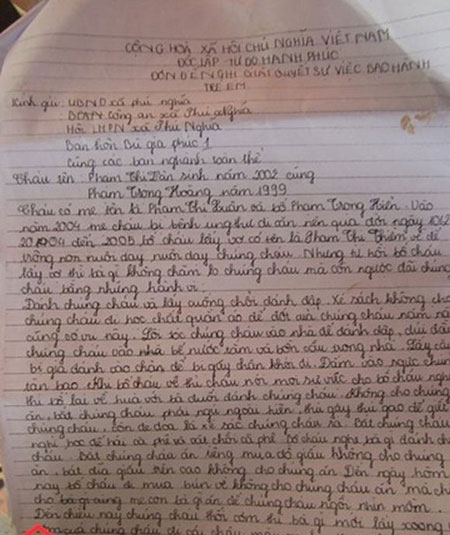 CỘNG HOÀ XÃ HỘI CHỦ NGHĨA VIỆT NAM
ĐỘC LẬP TỰ DO HẠNH PHÚC
ĐƠN ĐỀ NGHỊ GIẢI QUYẾT SỰ VIỆC BẠO HÀNH
TRẺ EM
Kính gửi: UBND xã phú nghĩa
BCH công an xã Phú Nghĩa
Hội LHPN xã Phú Nghĩa
Ban thôn Bù gia phúc 1
Cùng các ban nghành toàn thể
Cháu tên: Phạm Thị sinh năm 2002 cùng
Phạm Trọng Hoàng năm 1999
Cháu có mẹ tên là Phạm Thị Xuân và bố Phạm Trọng Hiến. Vào
năm 2004 mẹ cháu bị bệnh ung thư di căn nên qua đời ngày
2004 đến 2005 bố cháu lấy vợ có tên là Phạm Thị Thêm về để
trông non nuôi dạy nuôi dạy chúng cháu. Nhưng từ hồi bố cháu
lấy vợ thì bà gì không chăm lo chúng cháu mà còn ngược đãi chúng
cháu bằng những hành vi:
Đánh chúng cháu và lấy cuống chổi đánh đập. Xé sách không cho
chúng cháu đi học chặt quần áo để đời chúng cháu năm nào
cũng có vụ này. Lôi tóc chúng cháu vào nhà để đánh đập, dìu đầu
chúng cháu vào nhà bể nước tắm và bồn cầu trong nhà. Lấy cây
bí già đánh vào chân để bị gẫy chân khỏi đi. Đấm vào ngực chúng
tàn bạo. Khi bố cháu về thì cháu nói mọi sự việc cho bố cháu nghe
thì bố lại về hùa với bà dưới đánh chúng cháu. Không cho chúng
ăn, bắt chúng cháu phải ngủ ngoài hiên, thủ gậy thủ gạo để giết
chúng cháu, còn đe dọa là xé sác chúng cháu ra. Bắt chúng cháu
nghỉ học để hái cà phê và sát chồi cà phê. Bố cháu nghe bà gì đánh
cháu. Bắt chúng cháu ăn riêng mua đồ giấu không cho chúng
ăn, bát đĩa giấu trên cao không cho chúng ăn. Đến ngày hôm
nay bố cháu đi mua bún về không cho chúng cháu ăn mà chỉ
cho bà gì cùng mẹ con bà gì ăn để chúng cháu ngồi nhìn mồm.
Đến chiều nay chúng cháu thổi cơm thì bà gì mới lấy xoong
chúng cháu đi cấy cháu